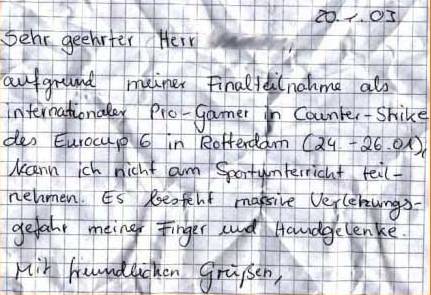 20.1.03
Sehr geehrter Herr ,
aufgrund meiner Finalteilnahme als
internationaler Pro-Gamer in Counter-Strike
des Eurocup 6 in Rotterdam (24.-26.01),
kann ich nicht am Sportunterricht teil-
nehmen. Es besteht massive Verletzungs-
gefahr meiner Finger und Handgelenke.
Mit freundlichen Grüßen,